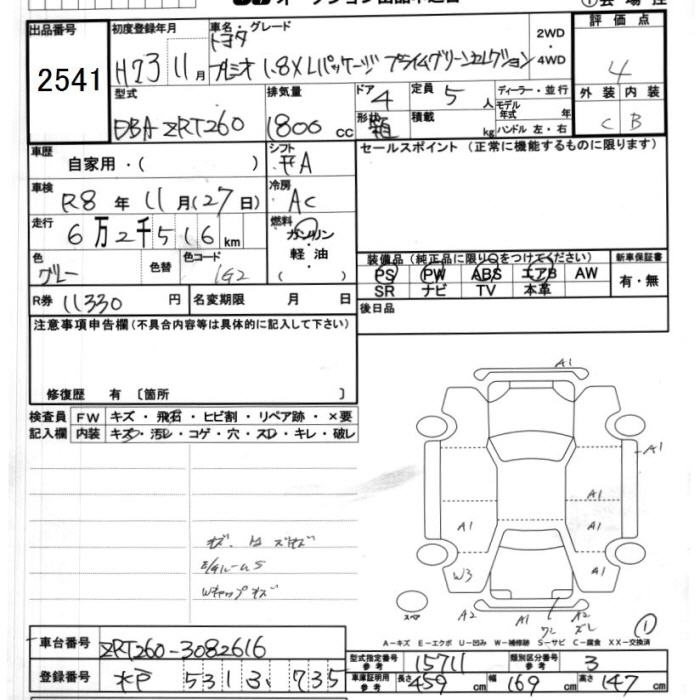 オークション出品申込書
①会場控
出品番号
2541
初度登録年月
H23 11月
車名・グレード
トヨタ
プレミオ 1.8X Lパッケージ プライムグリーンセレクション
2WD
・
4WD
評価点
4
外装 内装
C B
型式
DBA ZRT260
排気量
1800 cc
ドア 4
定員 5人
形状 箱
積載 kg
ディーラー・並行
モデル年式 年
ハンドル 左・右
車歴
自家用・( )
シフト
FA
車検
R8年 11月(27日)
冷房
AC
走行
6万2千516km
燃料
ガソリン
軽油
( )
色
グレー
色替
色コード
1G2
R券 11330円
名変期限 月 日
セールスポイント(正常に機能するものに限ります)
装備品(純正品に限り○をつけてください)
PS PW ABS エアB AW
SR ナビ TV 本革
新車保証書
有・無
後日品
注意事項申告欄(不具合内容等は具体的に記入して下さい)
修復歴 有〔箇所 〕
検査員 FW キズ・飛石・ヒビ割・リペア跡・×要
記入欄 内装 キズ・汚レ・コゲ・穴・スレ・キレ・破レ
A1
A1
A1
A1
A1
A1
W3
A2
A1
A2
スペア
①
A-キズ E-エクボ U-凹み W-補修跡 S-サビ C-腐食 XX-交換済
車台番号
ZRT260-3082616
登録番号
水戸 531 す 735
型式指定番号
参考
15711
類別区分番号
参考
3
車庫証明用
参考
長さ 459cm 幅 169cm 高さ 147cm